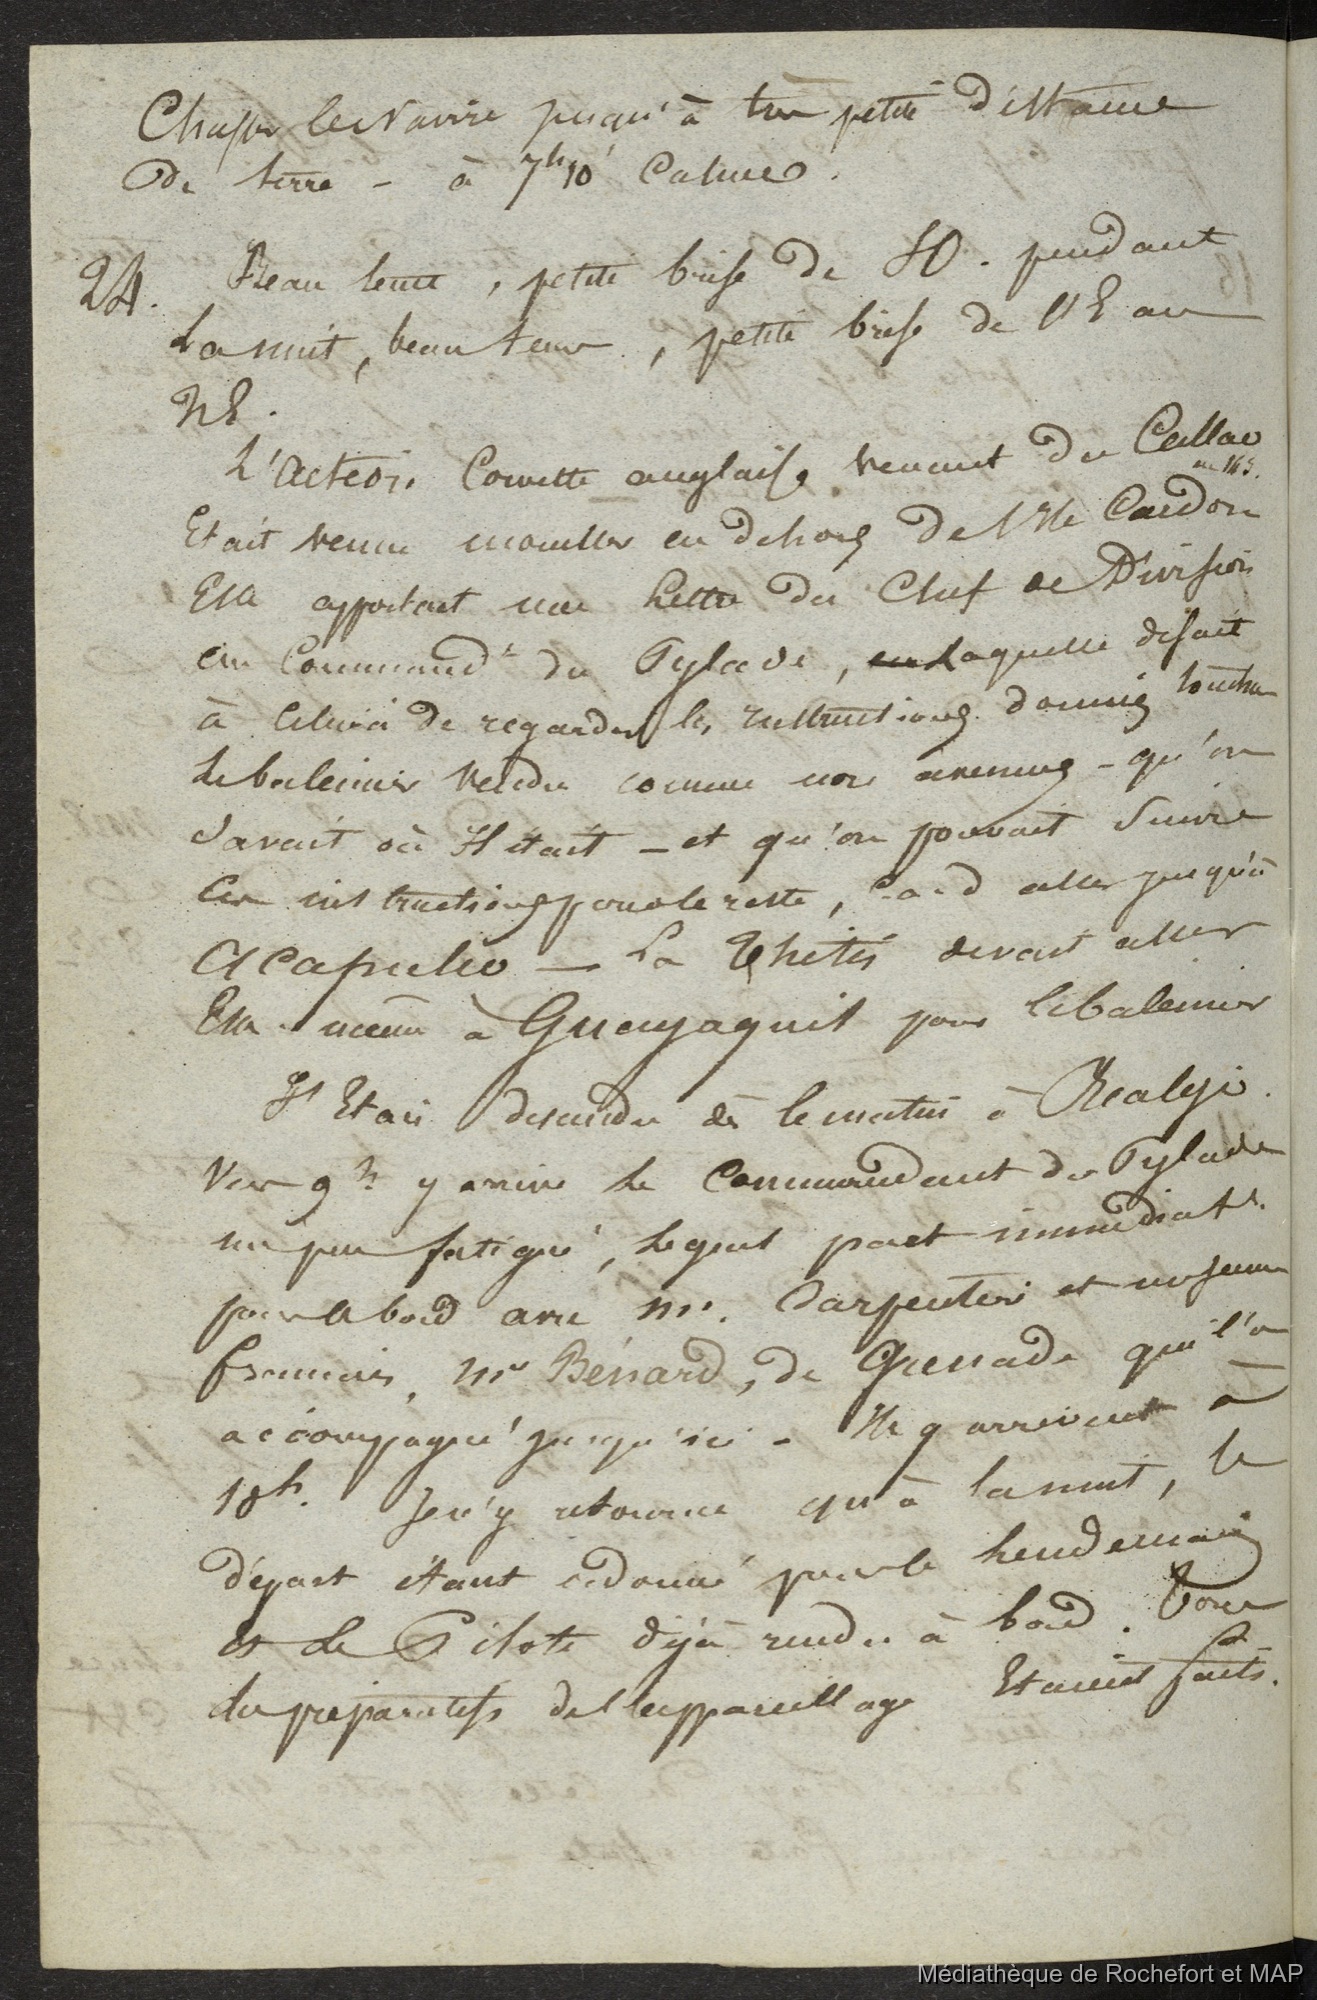 Chasser le Navire jusqu'à très petite distance
de terre - à 7h10' Calme.
24. Beau tems, petite brise de SO. pendant
La nuit, beau tems, petite brise de l'E au
NE.
L'acteon Corvette anglaise venant du Callao
Etait venue mouiller en dehors de l'Ile Cardon
Elle apportait une Lettre du Chef de Division
au Command.t du Pylade, laquelle disait
à celui-ci de regarder les Instructions données touchant
Le baleinier vendu comme non avenues - qu'on
Savait où Il était - et qu'on pouvait Suivre
les instructions pour le reste, c-a-d aller jusqu'à
Acapulco — La Thétis devait aller
Elle même à Guayaquil pour le baleinier
J'Etais descendu dès le matin à Realejo.
Vers 9h y arrive le Commandant du Pylade
un peu fatigué, lequel part immédiat.t
pour le bord avec Mr. Darpentier et un jeune
français, mr Bénard, de Grenade qui l'a
accompagné jusqu'ici - Ils y arrivent à
10h. Je n'y retourne qu'à la nuit, le
départ étant ordonné pour le Lendemain
et Le Pilote déjà rendu à bord. Tous
les préparatifs de l'appareillage Etaient faits.
Médiathèque de Rochefort et MAP